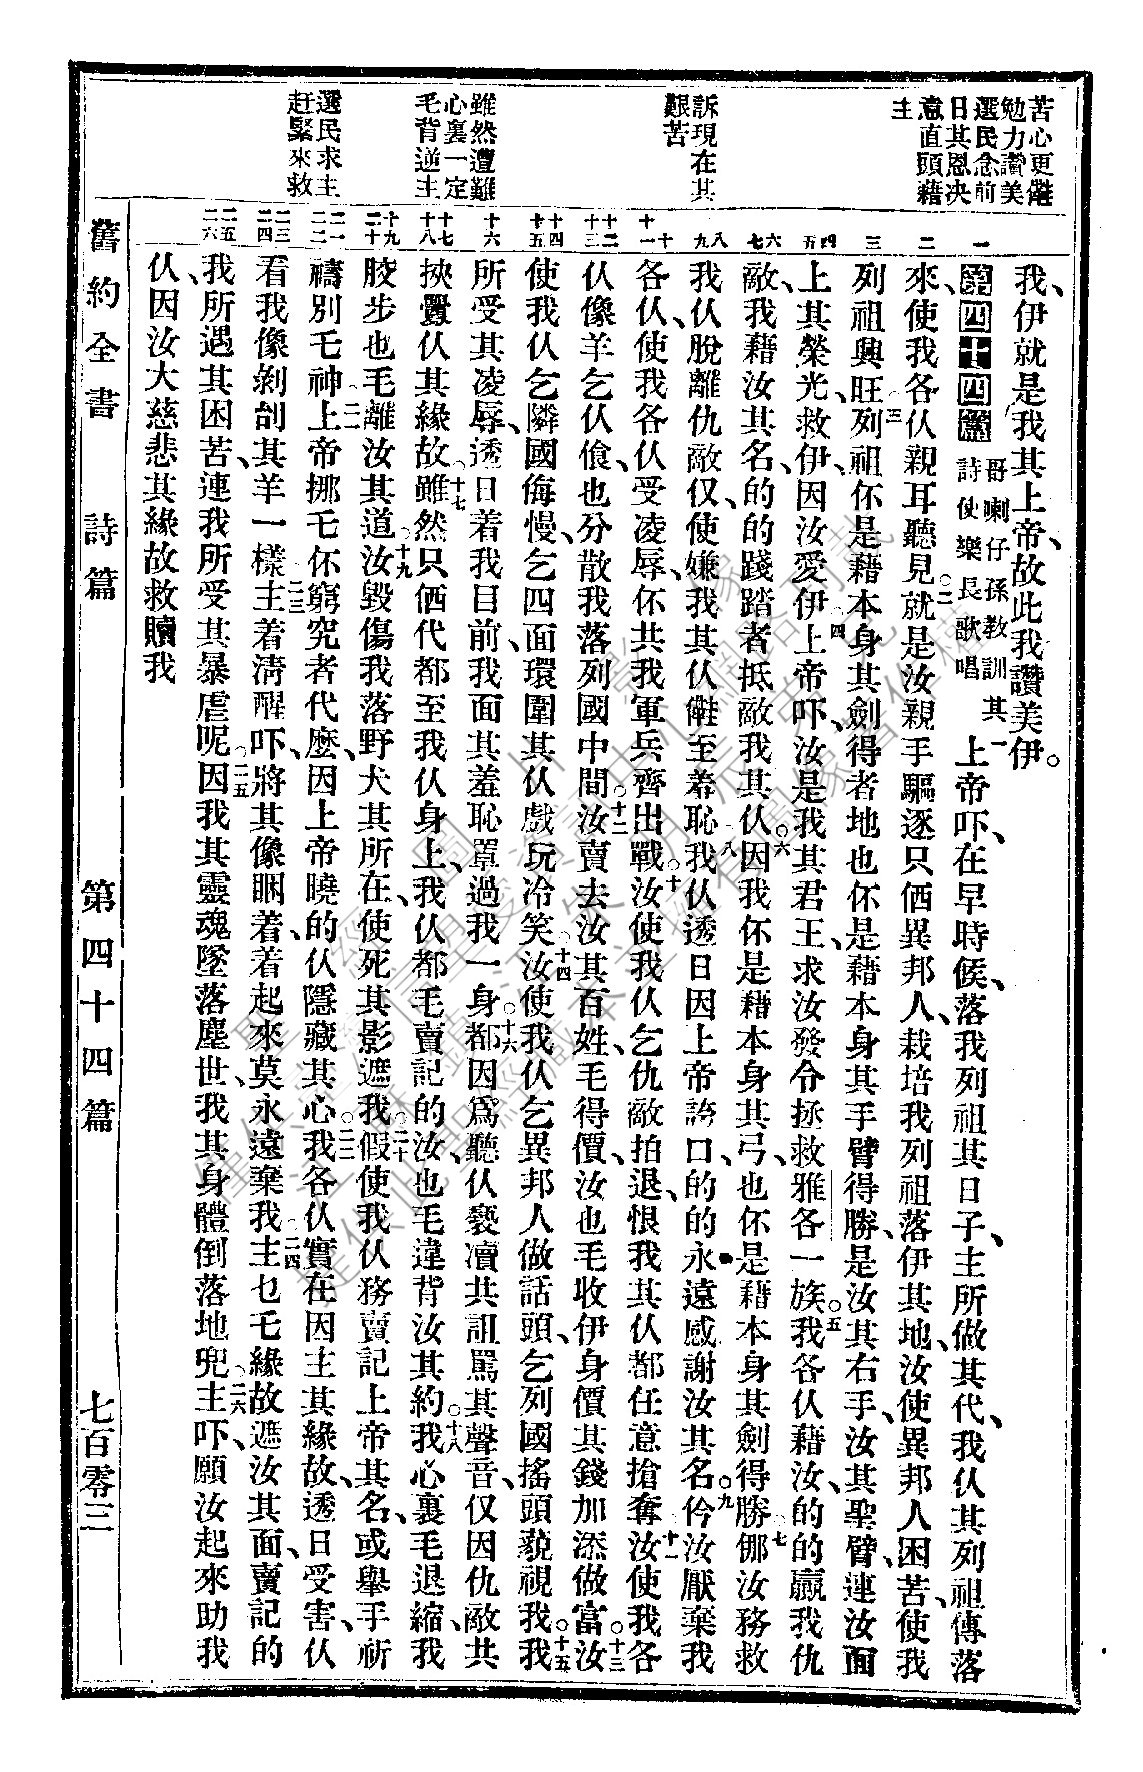 苦心更催
勉力讚美
選民念前
日其恩决
意直頭藉
主
訴現在其
艱苦
雖然遭難
心裏一定
毛背逆主
選民求主
赶緊來救
一
二
三
四五
六七
八九
十十一
十二十三
十四十五
十六
十七十八
十九二十
二一二二
二三二四
二五二六
我、伊就是我其上帝、故此我讚美伊。
第四十四篇 哥喇仔孫教訓其詩使樂長歌唱 一上帝吓、在早時候、落我列祖其日子、主所做其代、我仈其列祖傳落
來、使我各仈親耳聽見○二就是汝親手驅逐只俩異邦人、栽培我列祖落伊其地、汝使異邦人困苦、使我
列祖興旺○三列祖伓是藉本身其劍得者地、也伓是藉本身其手臂得勝、是汝其右手、汝其聖臂、連汝面
上其榮光、救伊、因汝愛伊○四上帝吓、汝是我其君王、求汝發令拯救雅各一族○五我各仈藉汝、的的贏我仇
敵、我藉汝其名、的的踐踏者抵敵我其仈○六因我伓是藉本身其弓、也伓是藉本身其劍得勝○七倻汝務救
我仈脫離仇敵、仅使嫌我其仈儺至羞恥○八我仈透日因上帝誇口、的的永遠感謝汝其名○九伶汝厭棄我
各仈、使我各仈受凌辱、伓共我軍兵齊出戰○十汝使我仈乞仇敵拍退、恨我其仈都任意搶奪○十一汝使我各
仈像羊乞仈飧、也分散我落列國中間○十二汝賣去汝其百姓、毛得價、汝也毛收伊身價其錢加添做富○十三汝
使我仈乞隣國侮慢、乞四面環圍其仈戲玩冷笑○十四汝使我仈乞異邦人做話頭、乞列國搖頭藐視我○十五我
所受其凌辱、透日着我目前、我面其羞恥罩過我一身○十六都因爲聽仈褻凟共詛駡其聲音、仅因仇敵共
挾讐仈其緣故○十七雖然只俩代都至我仈身上、我仈都毛賣記的汝、也毛違背汝其約○十八我心裏毛退縮、我
脚步也毛離汝其道○十九汝毀傷我落野犬其所在、使死其影遮我○二十假使我仈務賣記上帝其名、或舉手祈
禱別乇神○二一上帝挪乇伓窮究者代麽、因上帝曉的仈隱藏其心○二二我各仈實在因主其緣故、透日受害、仈
看我像剝刣其羊一樣○二三主着淸醒吓、將其像睏着、着起來莫永遠棄我○二四主乜乇緣故遮汝其面、賣記的
我所遇其困苦、連我所受其暴虐呢○二五因我其靈魂墜落塵世、我其身體倒落地兜○二六主吓、願汝起來助我
仈、因汝大慈悲其緣故救贖我
舊約全書　詩篇　第四十四篇　七百零三